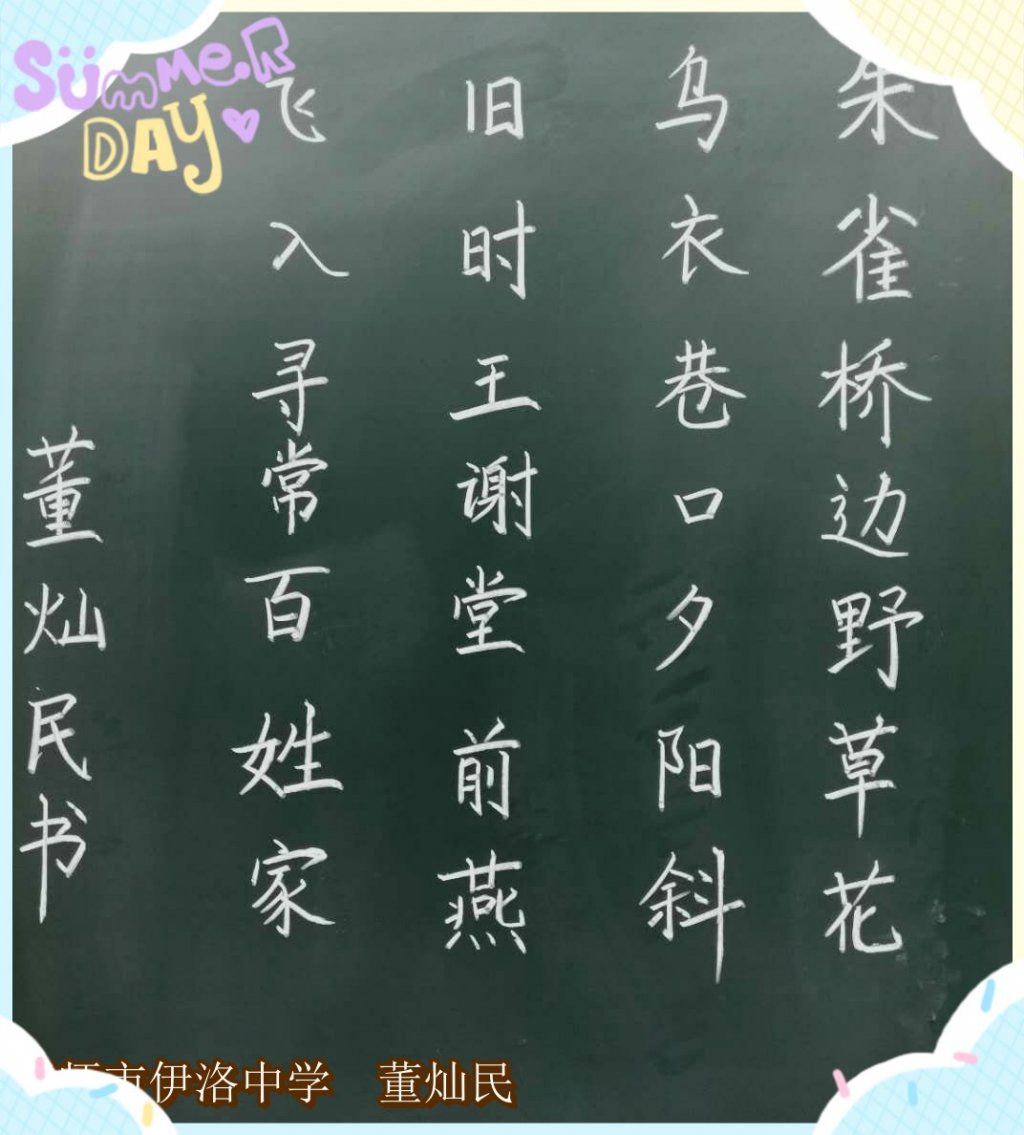 SUMMER
DAY
朱雀桥边野草花
乌衣巷口夕阳斜
旧时王谢堂前燕
飞入寻常百姓家
董灿民书
师市伊洛中学 董灿民